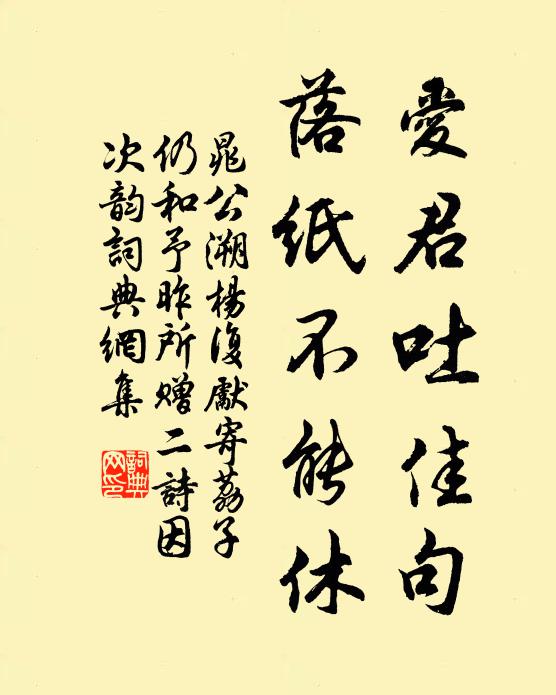 愛君吐佳句
落紙不能休
晁公溯楊復獻寄荔子
仍和予昨所贈二詩因
次韵詞典網集
詞典
网印